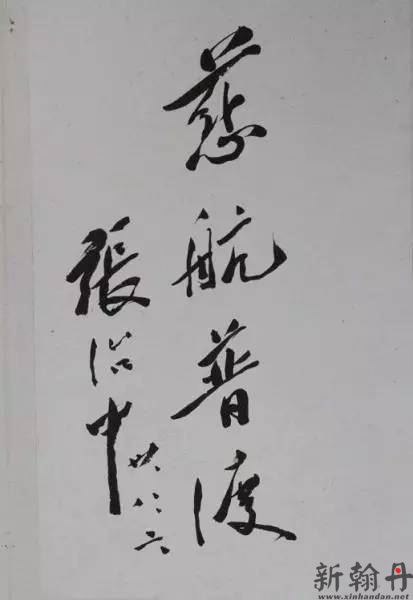 慈航普渡
張治中
八、六
新翰丹
www.xinhandan.net